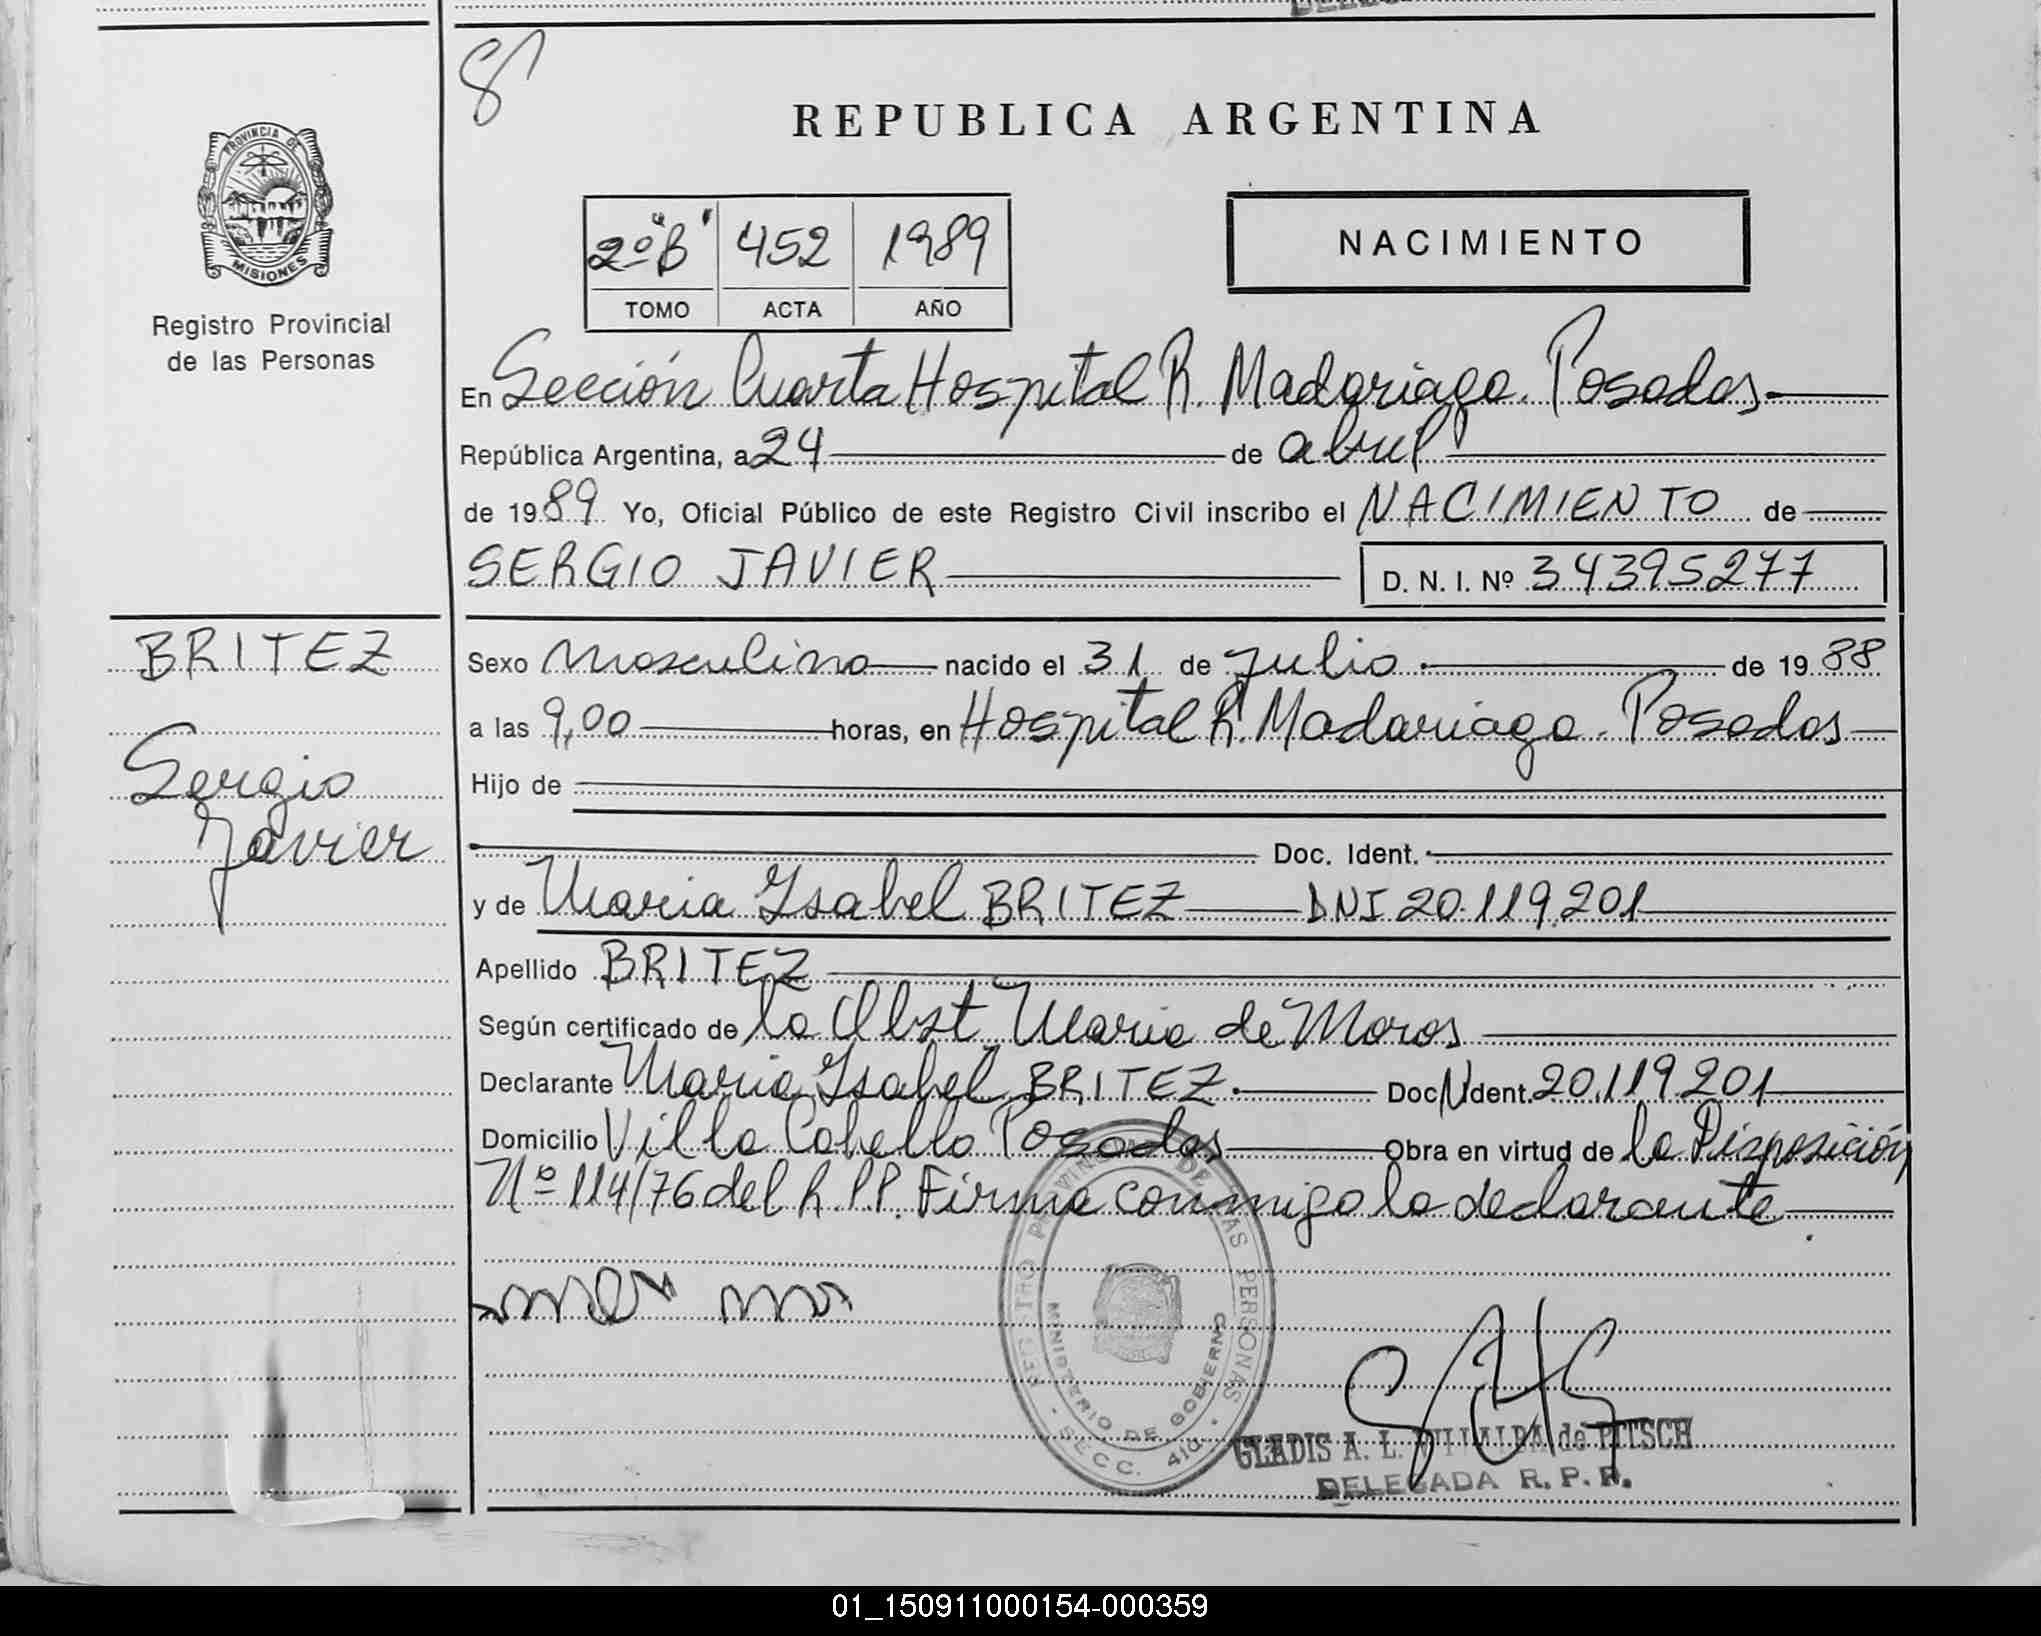 8
PROVINCIA DE
MISIONES
Registro Provincial
de las Personas
REPUBLICA ARGENTINA
2º "B" 452 1989
TOMO ACTA AÑO
NACIMIENTO
En Sección Cuarta Hospital R. Madariaga. Posadas
República Argentina, a 24 de abril
de 1989 Yo, Oficial Público de este Registro Civil inscribo el NACIMIENTO de
SERGIO JAVIER D. N. I. Nº 34395277
BRITEZ
Sergio
Javier
Sexo masculino nacido el 31 de julio de 1988
a las 9,00 horas, en Hospital R. Madariaga. Posadas
Hijo de
Doc. Ident.
y de Maria Ysabel BRITEZ DNI 20.119.201
Apellido BRITEZ
Según certificado de la Obst. Maria de Moros
Declarante Maria Ysabel BRITEZ. Doc N Ident. 20.119.201
Domicilio Villa Cabello Posadas Obra en virtud de la Disposición
Nº 114/76 del R.P.P. Firma conmigo la declarante.
REGISTRO PROVINCIAL DE LAS PERSONAS
MINISTERIO DE GOBIERNO
SECC. 4ta.
GLADIS A. L. VILLALBA de PITSCH
DELEGADA R. P. P.
01_150911000154-000359